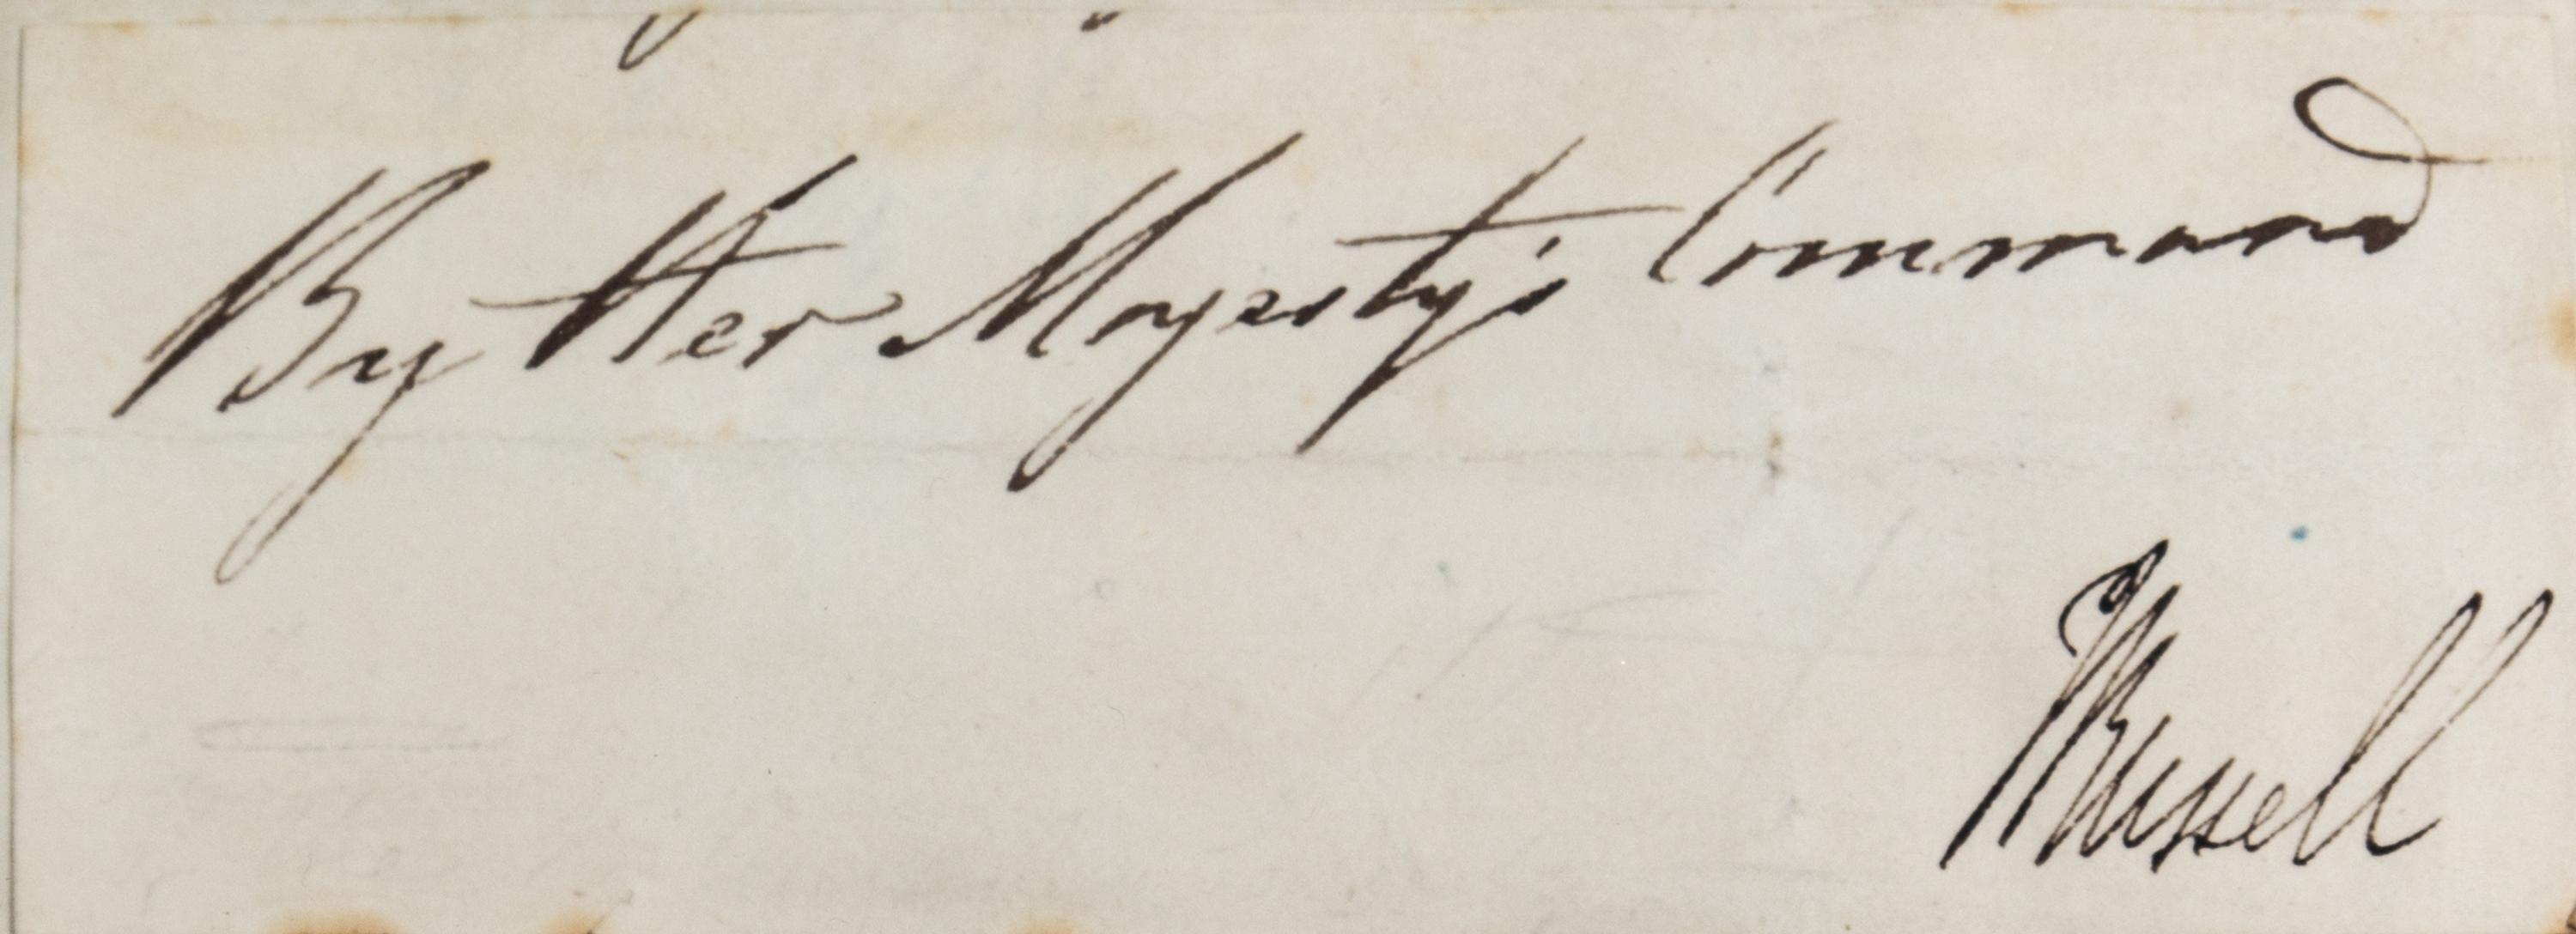 By Her Majesty's Command
JRussell